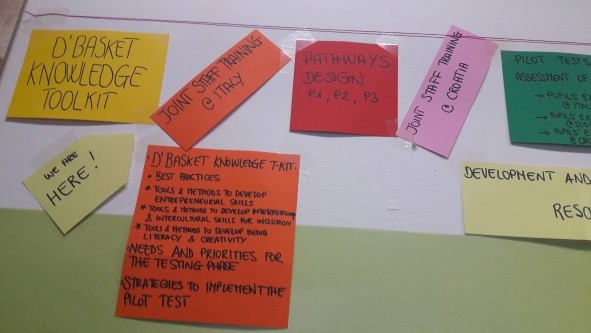 D'BASKET
KNOWLEDGE
TOOLKIT
JOINT STAFF TRAINING
@ ITALY
PATHWAYS
DESIGN
P1, P2, P3
JOINT STAFF TRAINING
@ CROATIA
PILOT TESTS
ASSESSMENT OF
→ PUPILS' EX
@ ITA
→ PUPILS' EX
→ PUPILS' EX
WE ARE
HERE!
• D'BASKET KNOWLEDGE T-KIT:
* BEST PRACTICES
* TOOLS & METHODS TO DEVELOP
ENTREPRENEURIAL SKILLS
* TOOLS & METHODS TO DEVELOP INTERPERSONAL
& INTERCULTURAL SKILLS FOR INCLUSION
* TOOLS & METHODS TO DEVELOP MEDIA
LITERACY & CREATIVITY
• NEEDS AND PRIORITIES FOR
THE TESTING PHASE
• STRATEGIES TO IMPLEMENT THE
PILOT TEST
DEVELOPMENT AND
RESO